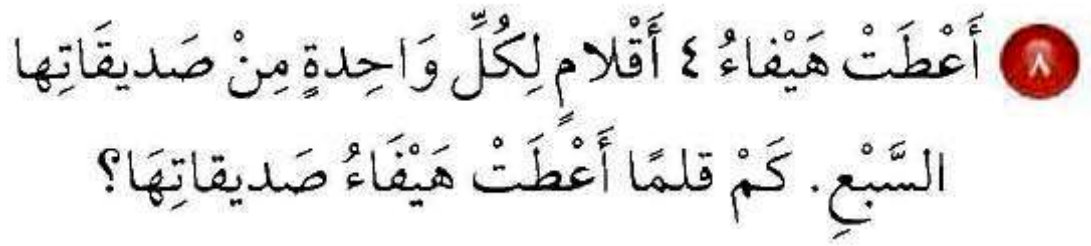 ٨ أَعْطَتْ هَيْفاءُ ٤ أَقْلامٍ لِكُلِّ وَاحِدةٍ مِنْ صَديقَاتِها
السَّبْعِ. كَمْ قلمًا أَعْطَتْ هَيْفَاءُ صَديقاتِهَا؟